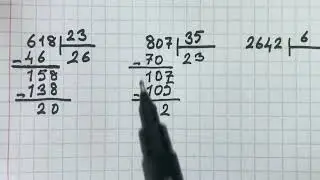 618 23 807 35 2642 6
-46 26 -70 23
158 107
-138 -105
20 2